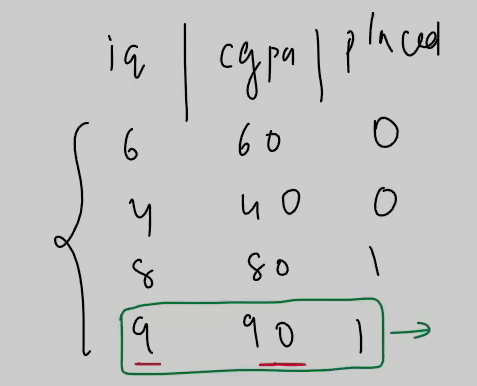 iq cgpa placed
6 60 0
4 40 0
8 80 1
9 90 1